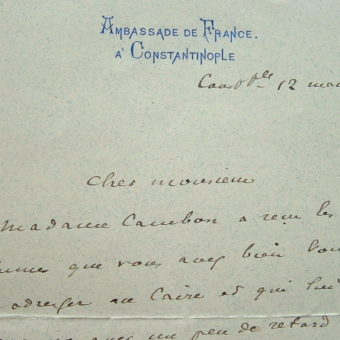 AMBASSADE DE FRANCE.
À CONSTANTINOPLE
Const ple 12 mai
Cher monsieur
Madame Cambon a reçu les
que vous avez bien
adresser au Caire et qui lui
avec un peu de retard